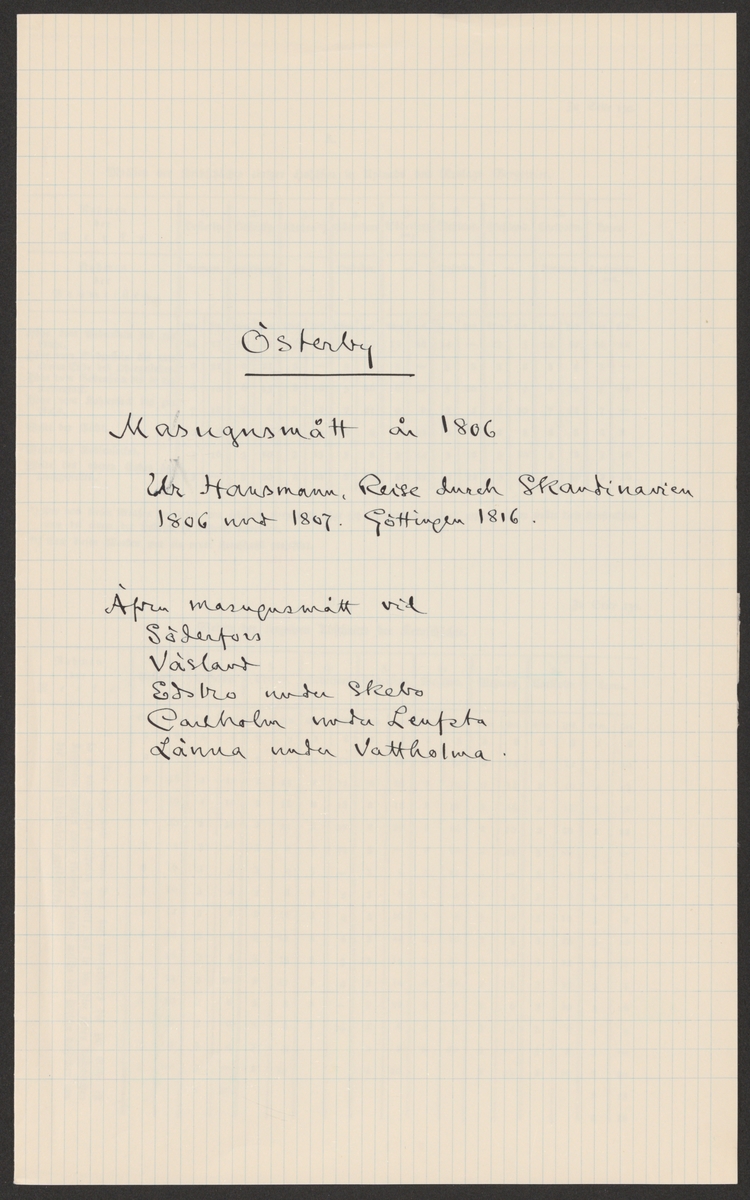 Österby
Masugnsmått år 1806
Ur Hausmann, Reise durch Skandinavien
1806 und 1807. Göttingen 1816.
Äfven masugnsmått vid
Söderfors
Väsland
Edsbro under Skebo
Carlholm under Leufsta
Länna under Vattholma.